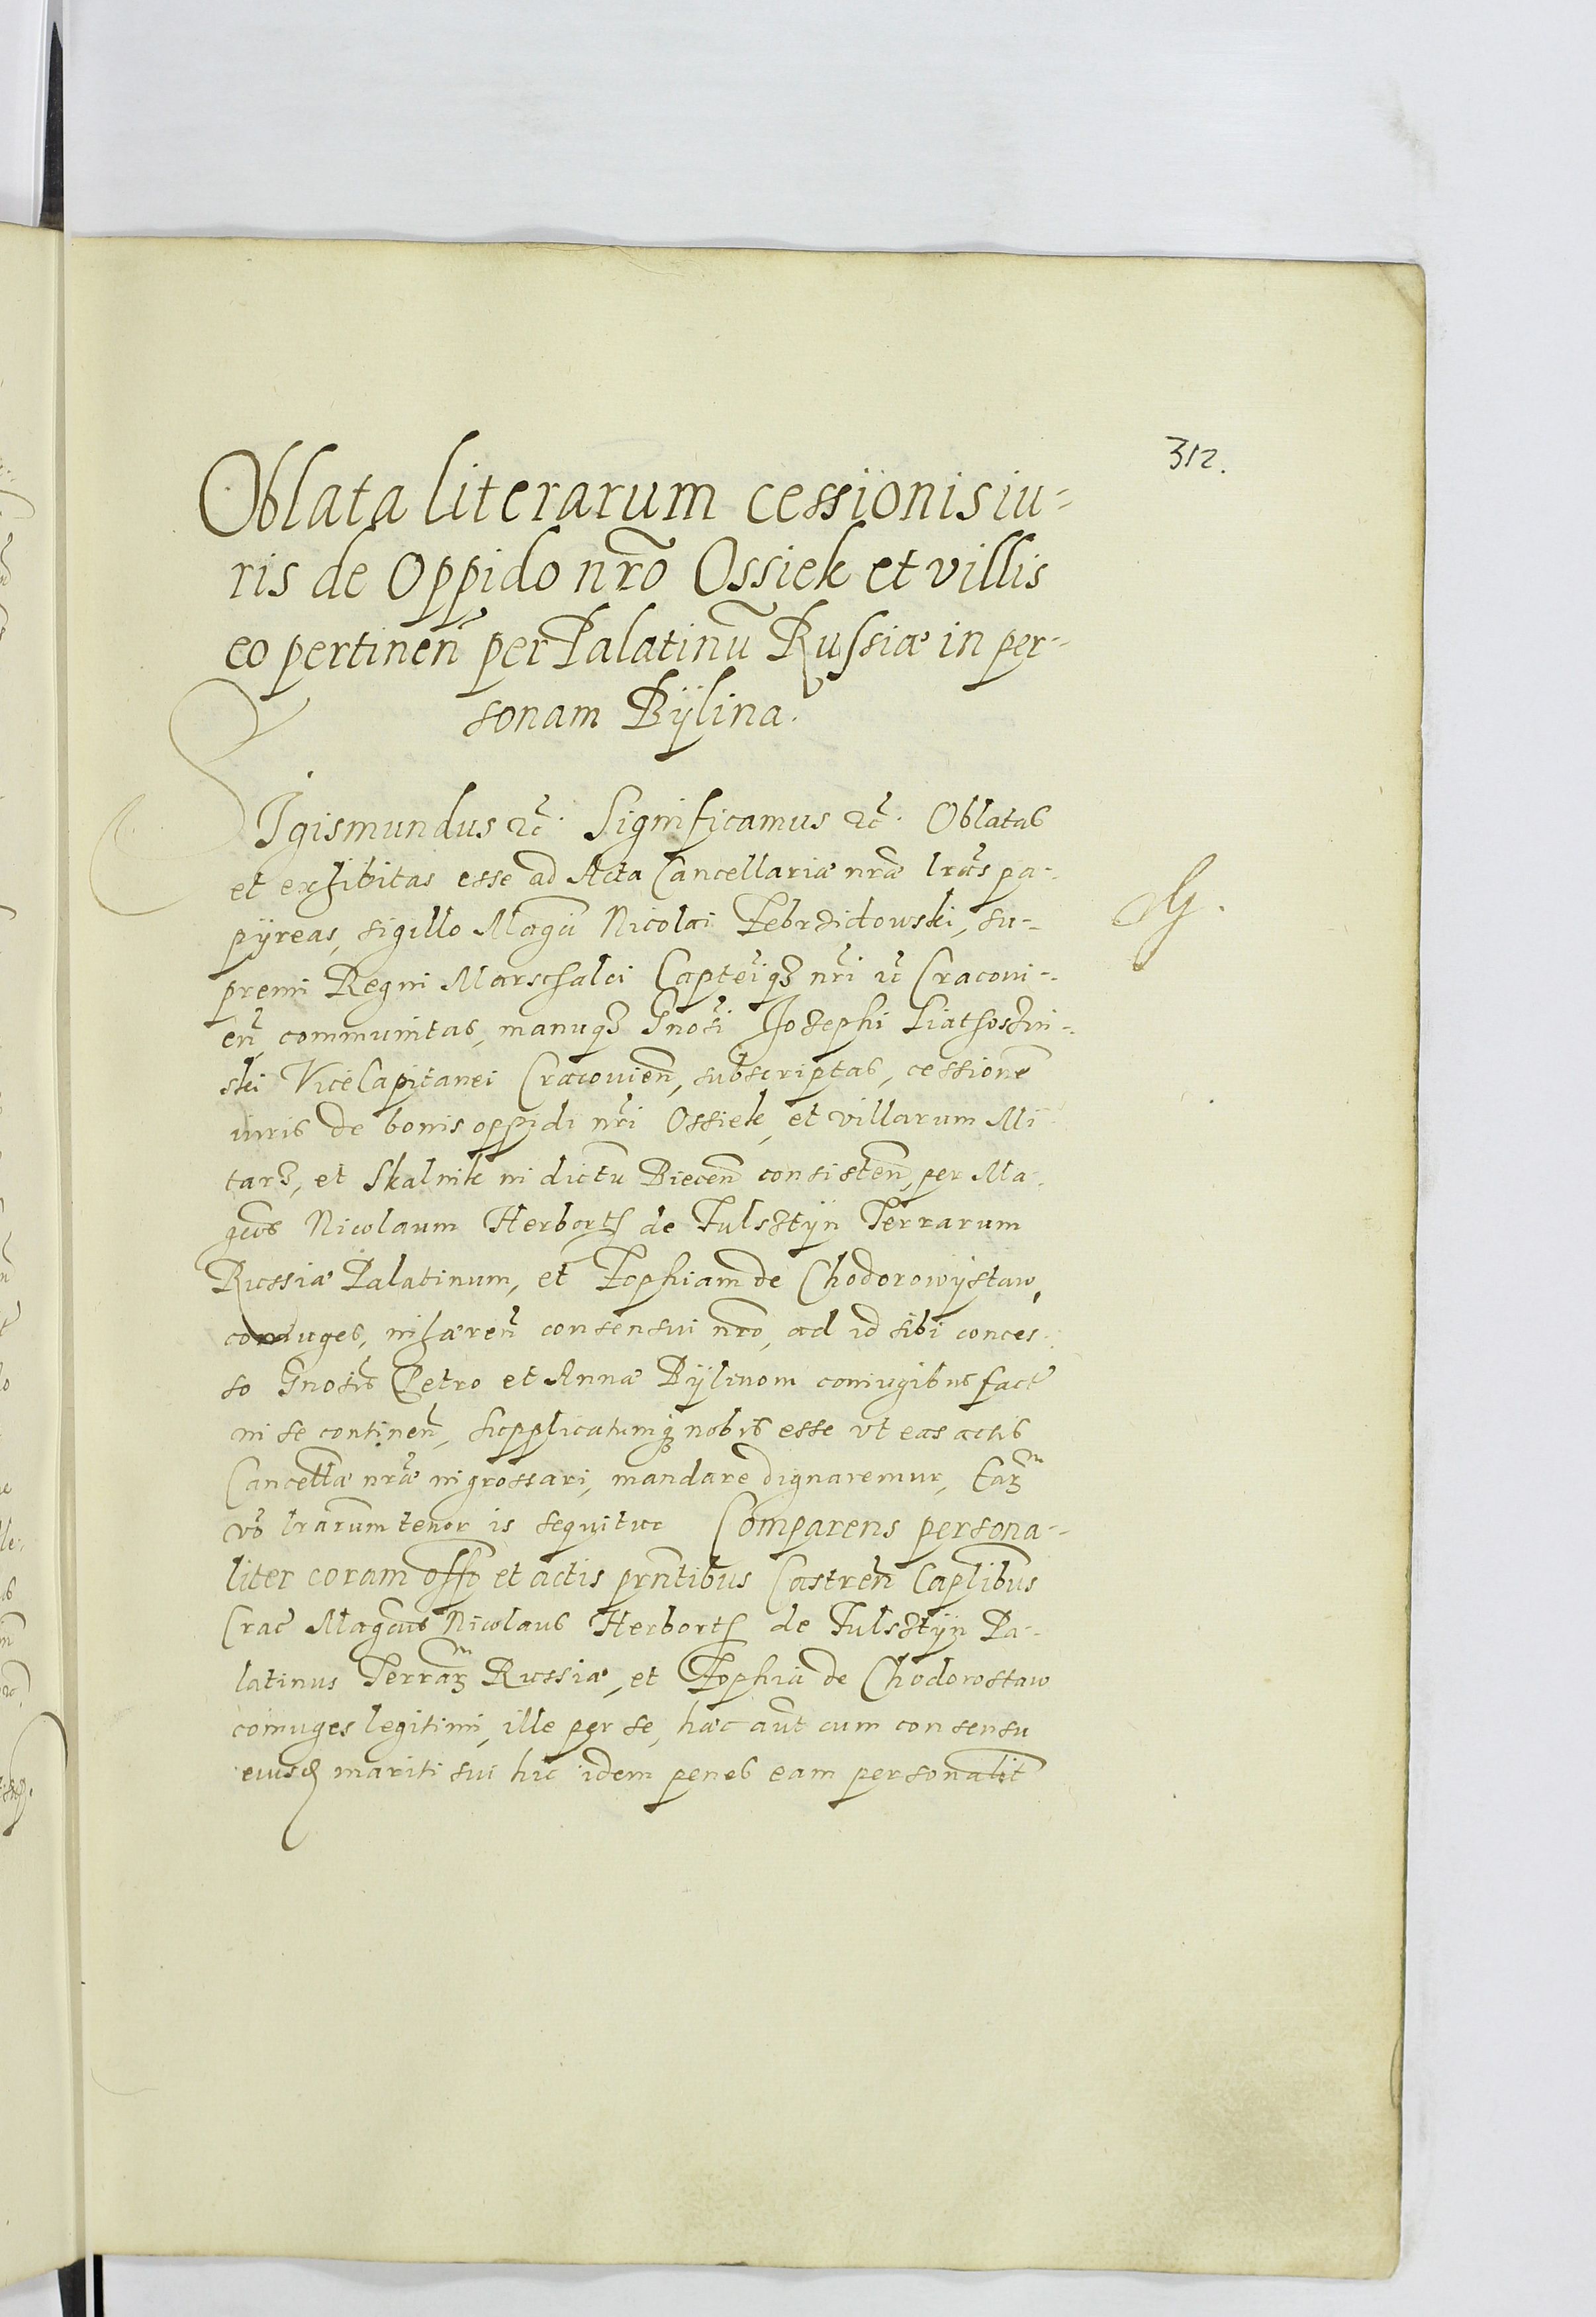 312.
Oblata literarum cessionis iu-
ris de Oppido nr̃o Ossiek et villis
eo pertineñ per Palatinũ Russiæ in per-
sonam Bÿlina.
Sigismundus ꝛc̃. Significamus ꝛc̃. Oblatas
et exhibitas esse ad Acta Cancellariæ nr̃æ lr̃as pa-
pÿreas, sigillo Magci Nicolai Zebrzidowski, su-
premi Regni Marschalci Capteiqꝫ nr̃i ꝛc̃ Cracovi-
eñ communitas, manuqꝫ Gnosi Josephi
ski ViceCapitanei Cracovieñ, subscriptas, cessionẽ
iuris de bonis oppidi nr̃i Ossiek, et villarum Mi
tarꝫ, et Skalnik in dictu Biecen̄ consisteñ, per Ma-
gcos Nicolaum Herborth de Fulsztÿn Terrarum
Russiæ Palatinum, et Zophiam de Chodorowÿstaw,
coniuges, inhæreñ consensui nr̃o, ad id sibi conces-
so Gnosis Petro et Annæ Bÿlinom coniugibus fact̃
in se contineñ, supplicatumqꝫ nobis esse vt eas actis
Cancellæ nr̃æ ingrossari, mandare dignaremur, Earꝫm
vo lr̃arum tenor is sequitur Comparens persona-
liter coram offo et actis prñtibus Castreñ Caplibus
Crac̃ Magcus Nicolaus Herborth de Fulsztÿn Pa-
latinus Terrarꝫm Russiæ, et Zophia de Chodorostaw
coniuges legitimi, ille per se, hæc aũt cum consensu
eiusd mariti sui hic idem penes eam personalit̃